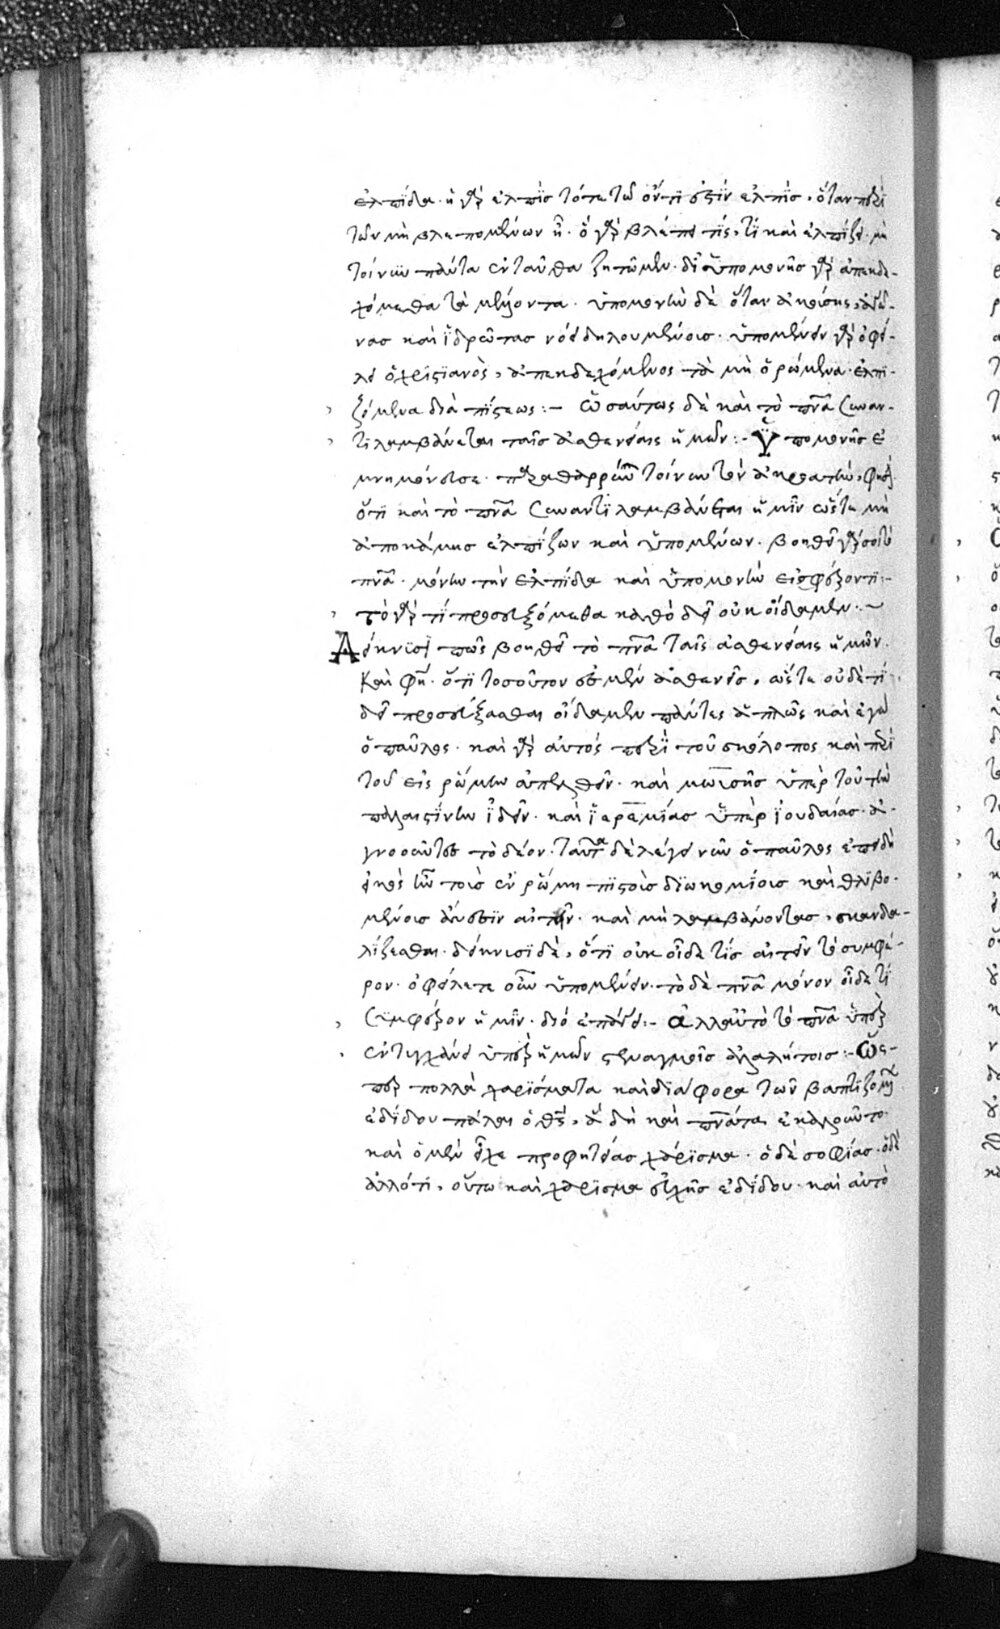 ἐλπίδα· ἡ γὰρ ἐλπὶς τότε τῶ ὄντι ἐστὶν ἐλπὶς, ὅταν περὶ
τῶν μὴ βλεπομένων ἦ· ὃ γὰρ βλέπει τίς, τί καὶ ἐλπίζει· μὴ
τοίνυν πάντα ἐνταῦθα ζητῶμεν· δι' ὑπομονῆς γὰρ ἀπεκδε-
χόμεθα τὰ μέλλοντα· ὑπομονὴν δὲ ὅταν ἀκούσης,
νας καὶ ἱδρῶτας νόει δηλουμένους· ὑπομένειν γὰρ ὀφεί-
λει ὁ χριστιανὸς, ἀπεκδεχόμενος τὰ μὴ ὁρώμενα ἐλπι-
ζόμενα διὰ πίστεως :- ὡσαύτως δὲ καὶ τὸ πνᾶ συναν-
τιλαμβάνεται ταῖς ἀσθενείαις ἡμῶν :- Ὑπομονῆς ἐ
μνημόνευσε· παραθαρρύνων τοίνυν τὸν ἀκροατὴν, φησὶ
ὅτι καὶ τὸ πνᾶ συναντιλαμβάνεται ἡμῖν ὥστε μὴ
ἀποκάμης ἐλπίζων καὶ ὑπομένων· βοηθεῖ γάρ σοι τὸ
πνᾶ· μόνον τὴν ἐλπίδα καὶ ὑπομονὴν εἰσφέροντι :-
τὸ γὰρ τί προσευξόμεθα καθὸ δεῖ οὐκ οἴδαμεν :~
Δείκνυσι πῶς βοηθεῖ τὸ πνᾶ ταῖς ἀσθενείαις ἡμῶν
καὶ φησὶ· ὅτι τοσοῦτον ἐσμὲν ἀσθενεῖς, ὥστε οὐδὲ τί
δεῖ προσεύξασθαι οἴδαμεν πάντες ἁπλῶς καὶ ἐγὼ
ὁ παῦλος· καὶ γὰρ αὐτὸς περὶ τοῦ σκόλοπος καὶ περὶ
τοῦ εἰς ρώμην ἀπελθεῖν· καὶ μωϊσῆς ὑπὲρ τοῦ τὴν
παλαιστίνην ἰδεῖν· καὶ ἱερεμίας ὑπὲρ ἰουδαίας· ἀ-
γνοοῦντες τὸ δέον· ταῦτα δὲ λέγει νῦν ὁ παῦλος ἐπειδὴ
εἰκὸς ἦν τοῖς ἐν ρώμη πιστοῖς διωκομένοις καὶ θλιβο-
μένοις ἄνεσιν αἰτεῖν· καὶ μὴ λαμβάνοντας, σκανδα-
λίζεσθαι· δείκνυσι δὲ, ὅτι οὐκ οἶδε τίς αἰτεῖν τὸ συμφέ-
ρον· ὀφείλετε οὖν ὑπομένειν· τὸ δὲ πνᾶ μόνον οἶδε τί
συμφέρον ἡμῖν· διὸ ἐπάγει :- ἀλλ' αὐτὸ τὸ πνᾶ ὑπερ
εντυγχάνει ὑπὲρ ἡμῶν στεναγμοῖς ἀλαλήτοις :- Ὥσ-
περ πολλὰ χαρίσματα καὶ διάφορα τῶν βαπτιζομένων
ἐδίδου πάλαι ὁ θς, ἃ δὴ καὶ πνάτα ἐκαλοῦντο·
καὶ ὁ μὲν εἶχε προφητείας χάρισμα· ὁ δὲ σοφίας· ὁ δὲ
ἄλλό τι, οὕτω καὶ χάρισμα εὐχῆς ἐδίδου· καὶ αὐτὸ